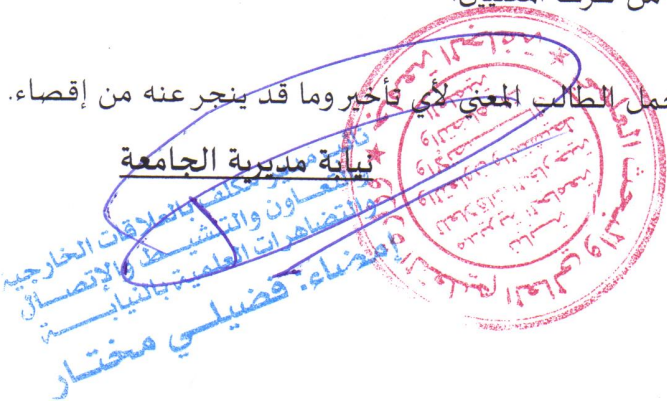 من طرف المعنيين.
يتحمل الطالب المعني لأي تأخير وما قد ينجر عنه من إقصاء.
نيابة مديرية الجامعة
نائب مدير مكلف بالعلاقات الخارجية
والتعاون والتنشيط والإتصال
والتضاهرات العلمية بالنيابة
إمضاء: فضيلي مختار
التعليم العالي والبحث العلمي